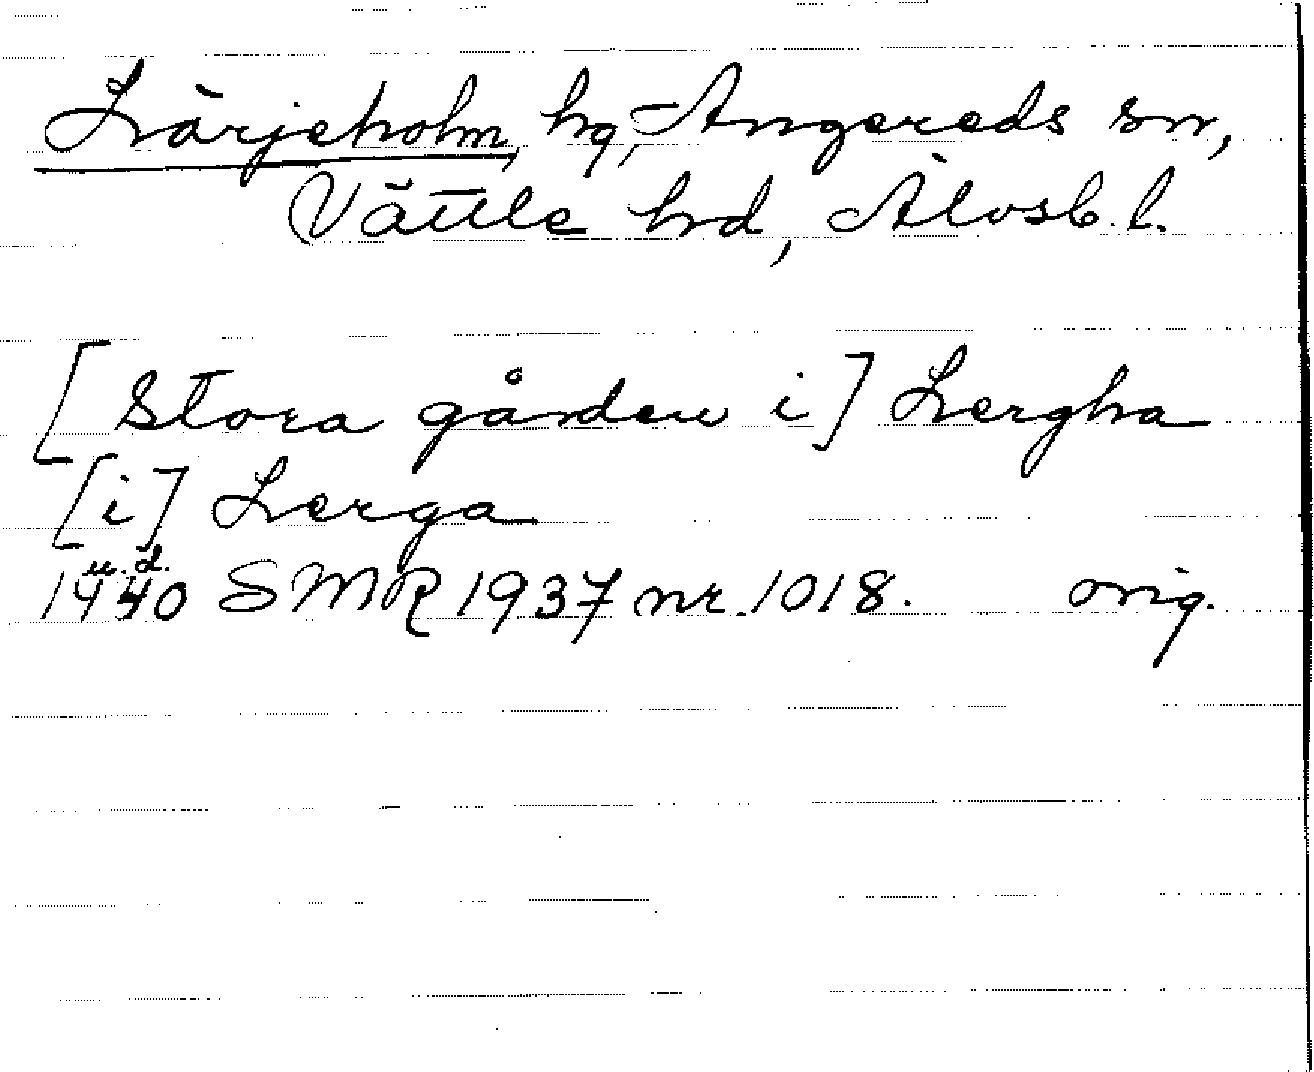 Lärjeholm, hg, Angereds sn,
Vättle hd, Älvsb. l.
[Stora gården i] Lergha
[i] Lerga
u. d.
1440 SMR 1937 nr. 1018. orig.